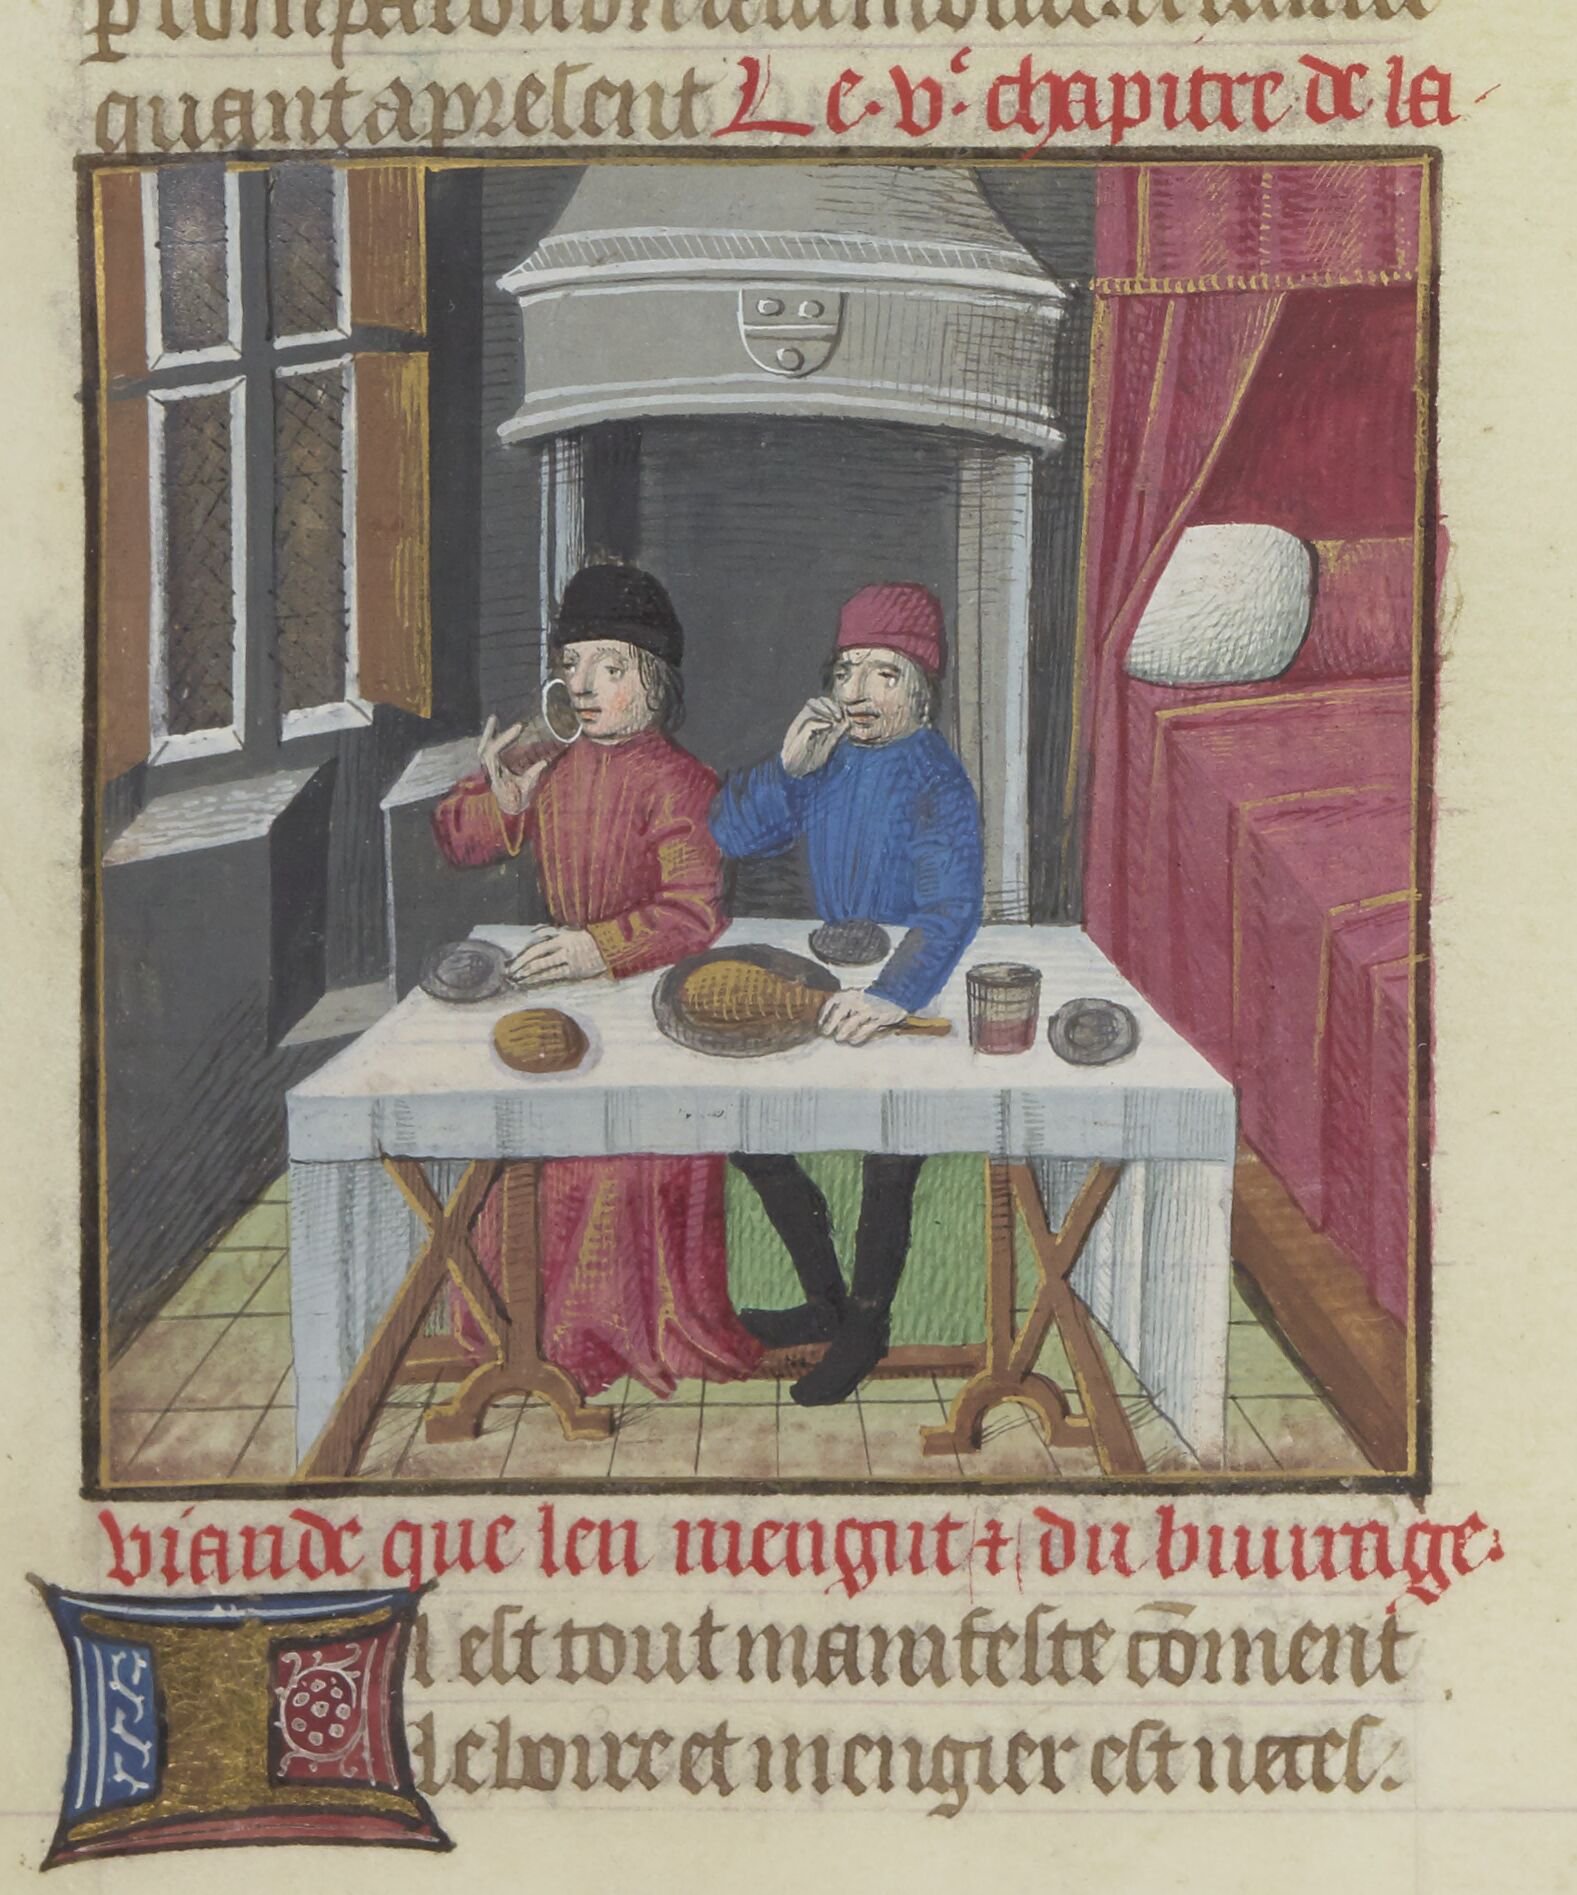 quant a present Le .v.e chapitre de la
viande que len mengut ⁊ du buurage.
Il est tout manifeste cōment
de boire et mengier est neces